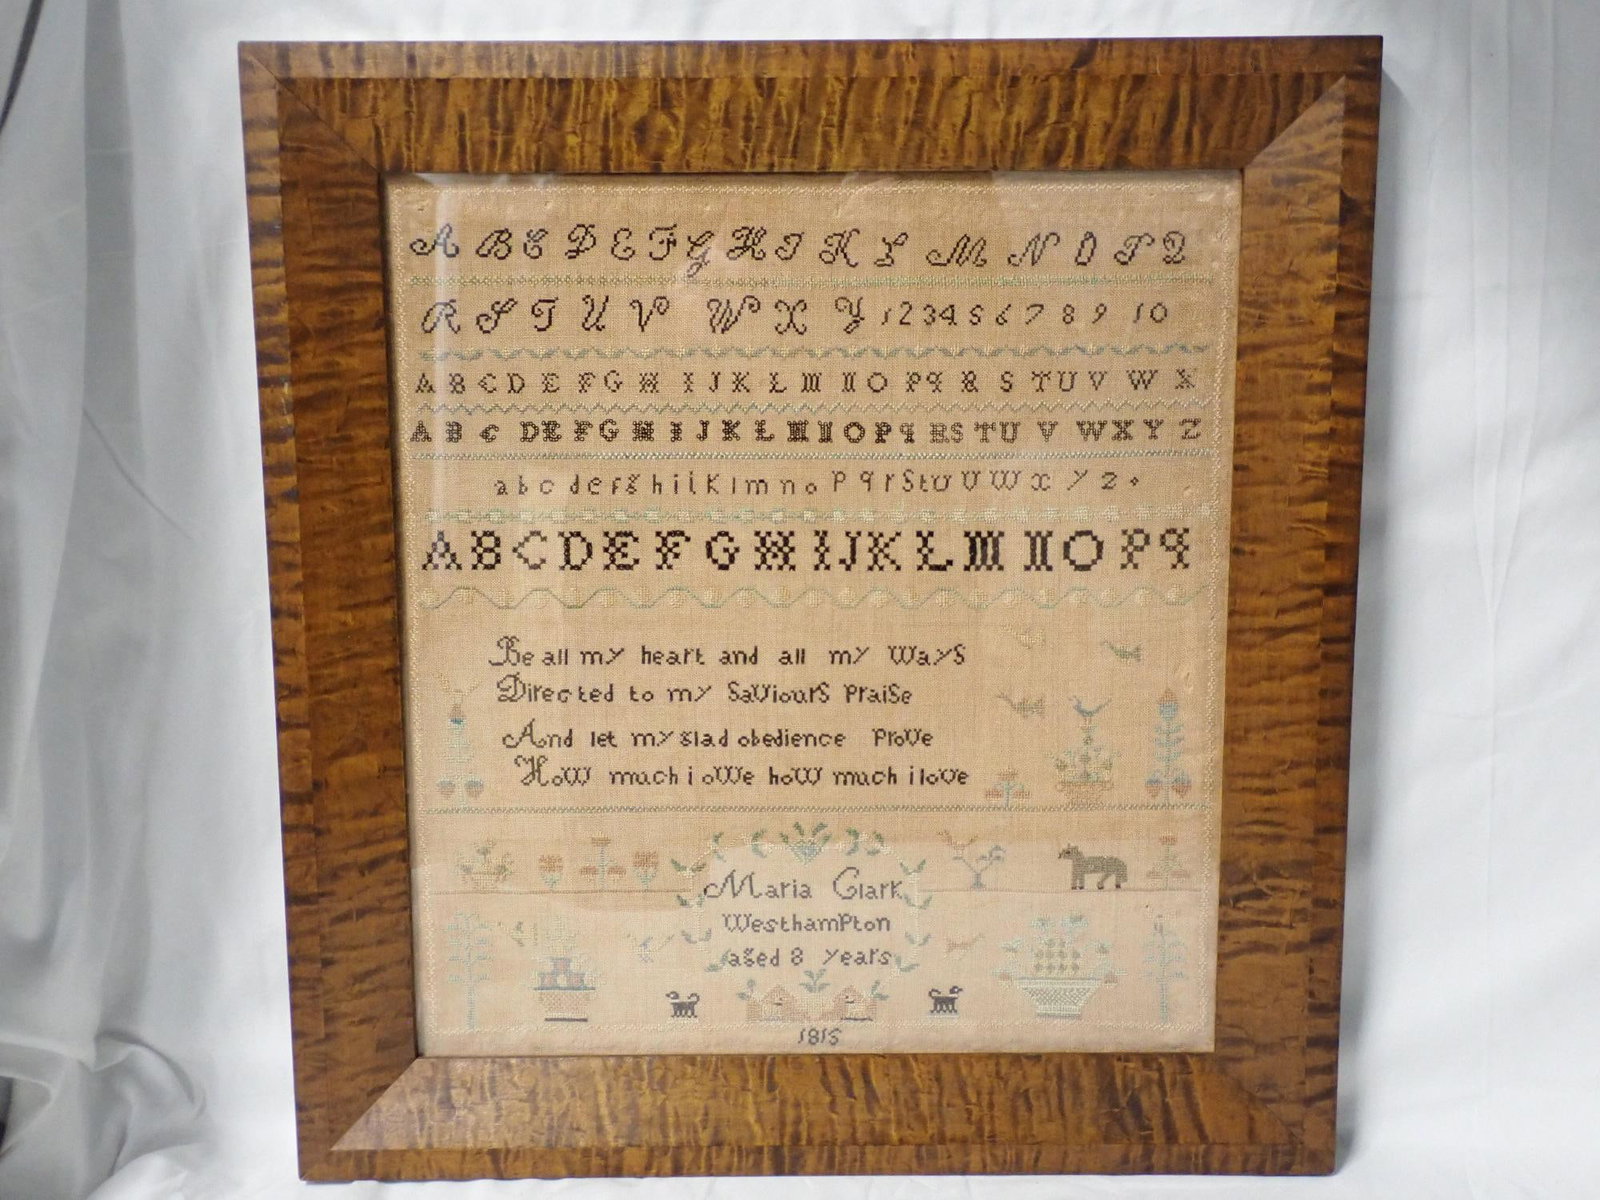 A B C D E F G H I K L M N O P Q
R S T U V W X Y 1 2 3 4 5 6 7 8 9 10
A B C D E F G H I J K L M N O P q R S T U V W X
A B C D E F G H I J K L M N O P q R S T U V W X Y Z
a b c d e f g h i l K l m n o P q r S t U V W x y z .
A B C D E F G H I J K L M N O P q
Be all my heart and all my Ways
Directed to my SaViourS PraiSe
And let my glad obedience ProVe
HoW much i oWe hoW much i loVe
Maria Clark
WesthamPton
aged 8 years
1815